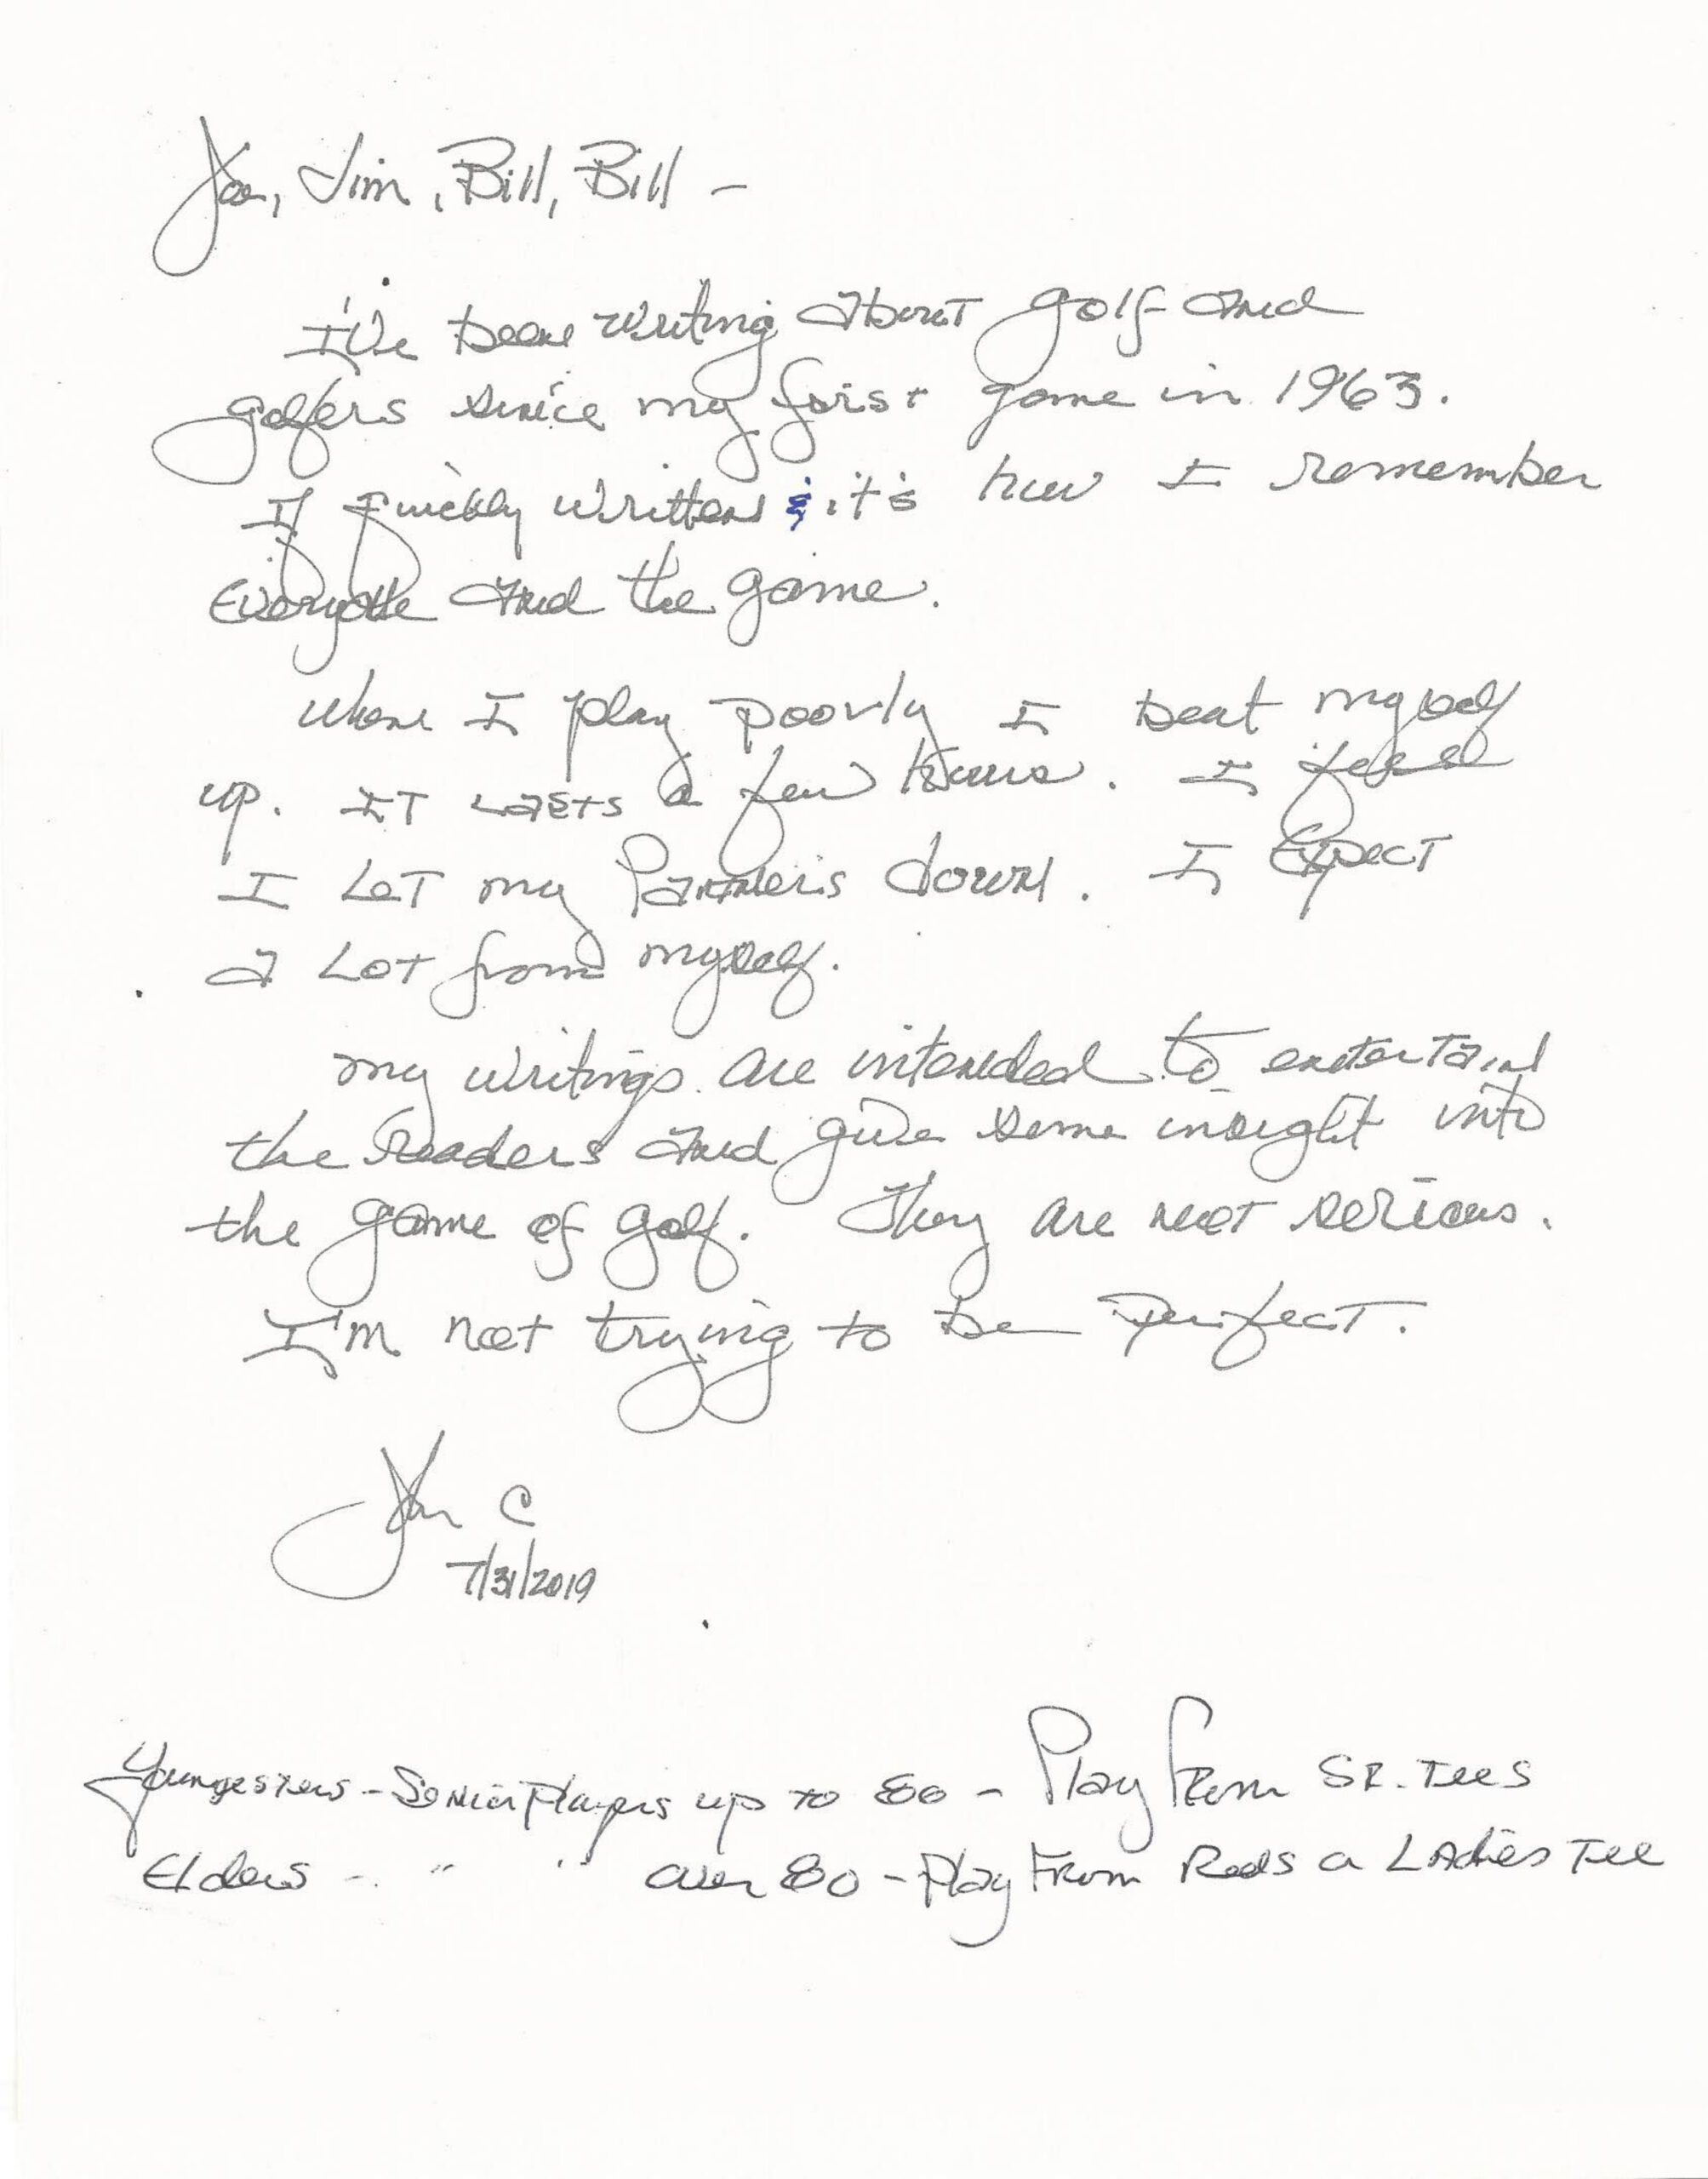 Joe, Jim, Bill, Bill -
I've been writing about golf and
golfers since my first game in 1963.
If quickly written & it's how I remember
Everyone and the game.
When I play poorly I beat myself
up. IT LASTS a few hours. I feel
I LET my Partners down. I Expect
a Lot from myself.
my writings are intended to entertain
the readers and give some insight into
the game of golf. They are not serious.
I'm not trying to be perfect.
C
7/31/2019
Youngesters - Senior Players up to 80 - Play From SR. Tees
Elders - " " over 80 - Play From Reds a LAdies Tee